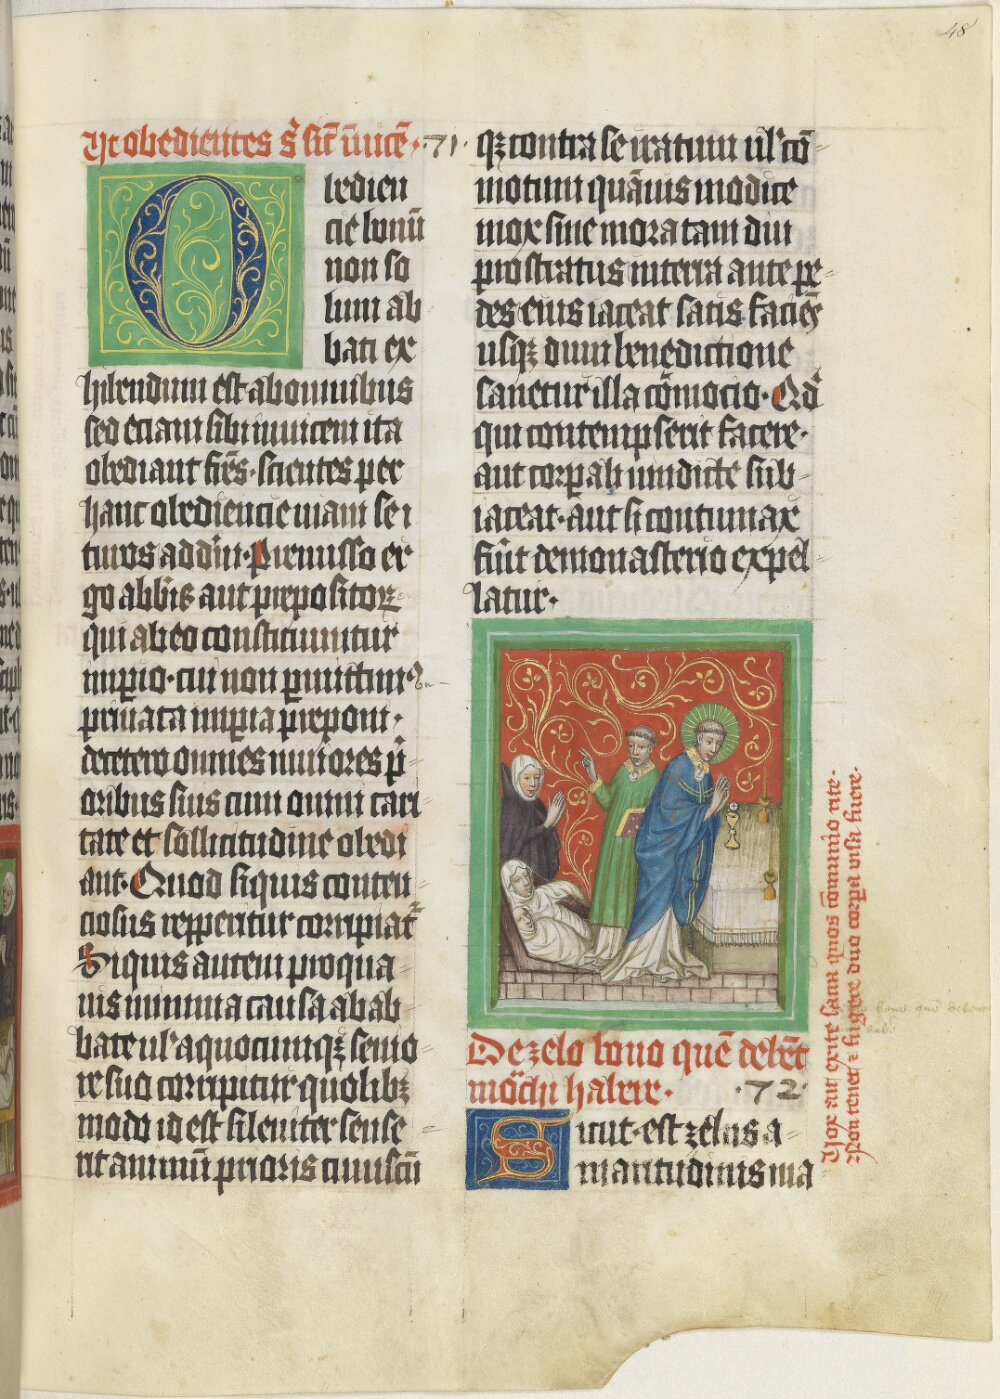 48
Ut obediētes s̄ sīt īuicē · 71 ·
Obedien
cie bonū
non so
lum ab
bati ex
hibendum est ab omnibus
sed eciam sibi inuicem ita
obediant frēs · scientes per
hanc obediencie uiam se i
turos ad dm̄ · Premisso er
go abbīs aut prepositorꝝ
qui ab eo constituuntur
imꝑio · cui non ꝑmittimꝰ
priuata imꝑia preponi ·
de cetero omnes iuniores p̄
oribus suis cum omni cari
tate et sollicitudine obedi
ant · Quod si quis conten
ciosus repperitur corripiat᷑
Si quis autem pro qua
uis minima causa ab ab
bate ul̕ a quocumqꝫ senio
re suo corripitur quolibꝫ
modo id est si leuiter sense
rit animū prioris cuiuscū
qꝫ contra se iratum ul̕ cō
motum quāuis modice
mox sine mora tam diu
prostratus in terra ante pe
des eius iaceat satis faciēs
usqꝫ dum benedictione
sanetur illa cōmocio · Qd̕
qui contempserit facere ·
aut corꝑali uindicte sub
iaceat · aut si contumax
fūit de monasterio expel
latur ·
De zelo bono quē debēt
mōchi habere · · 72 ·
Sicut · est zelus a
maritudinis ma
Vox ait exite sacra quos cōmunio rite ·
Non tenet ⁊ fugere duo corꝑa uisa fuere ·
bono quē debent